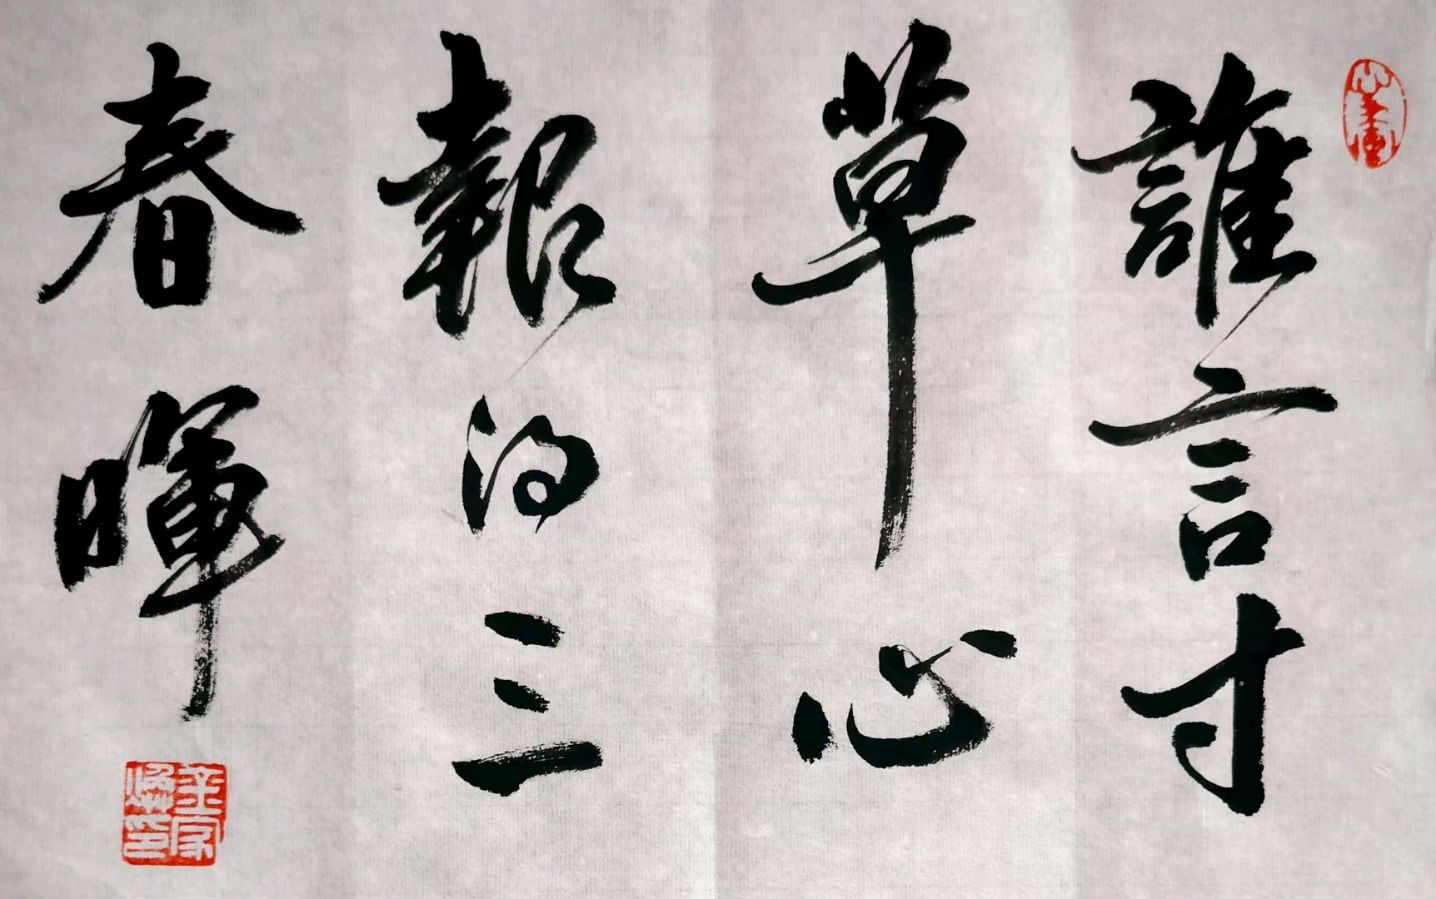 誰言寸
草心
報得三
春暉